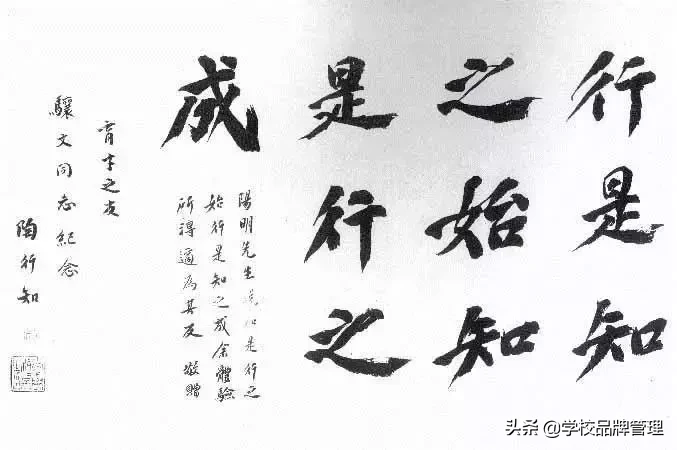 行是知
之始知
是行之
成
陽明先生說知是行之
始行是知之成余體驗
所得適為其反 敬贈
育才之友
驤文同志紀念
陶行知
头条 @学校品牌管理